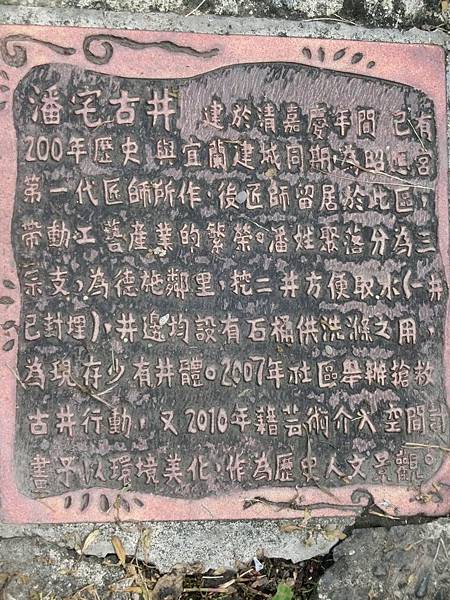 潘宅古井 建於清嘉慶年間 已有
200年歷史與宜蘭建城同期,為昭應宮
第一代匠師所作,後匠師留居於此區,
帶動工藝產業的繁榮。潘姓聚落分為三
宗支,為德施鄰里,挖二井方便取水(一井
已封埋),井邊均設有石桶供洗滌之用,
為現存少有井體。2007年社區舉辦搶救
古井行動,又2010年藉芸術介入空間計
畫予以環境美化,作為歷史人文景觀。